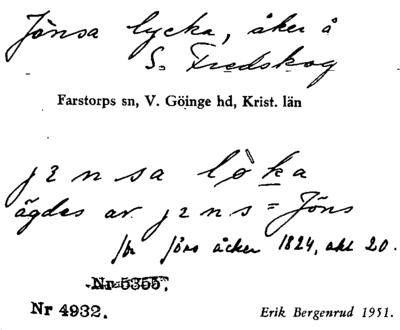 Jönsa lycka, åker å
S. Fredskog
Farstorps sn, V. Göinge hd, Krist. län
jɛnsa lø̀ka
ägdes av jɛns = Jöns
Jöns åcker 1824, akt 20.
Nr 5355.
Nr 4932.
Erik Bergenrud 1951.